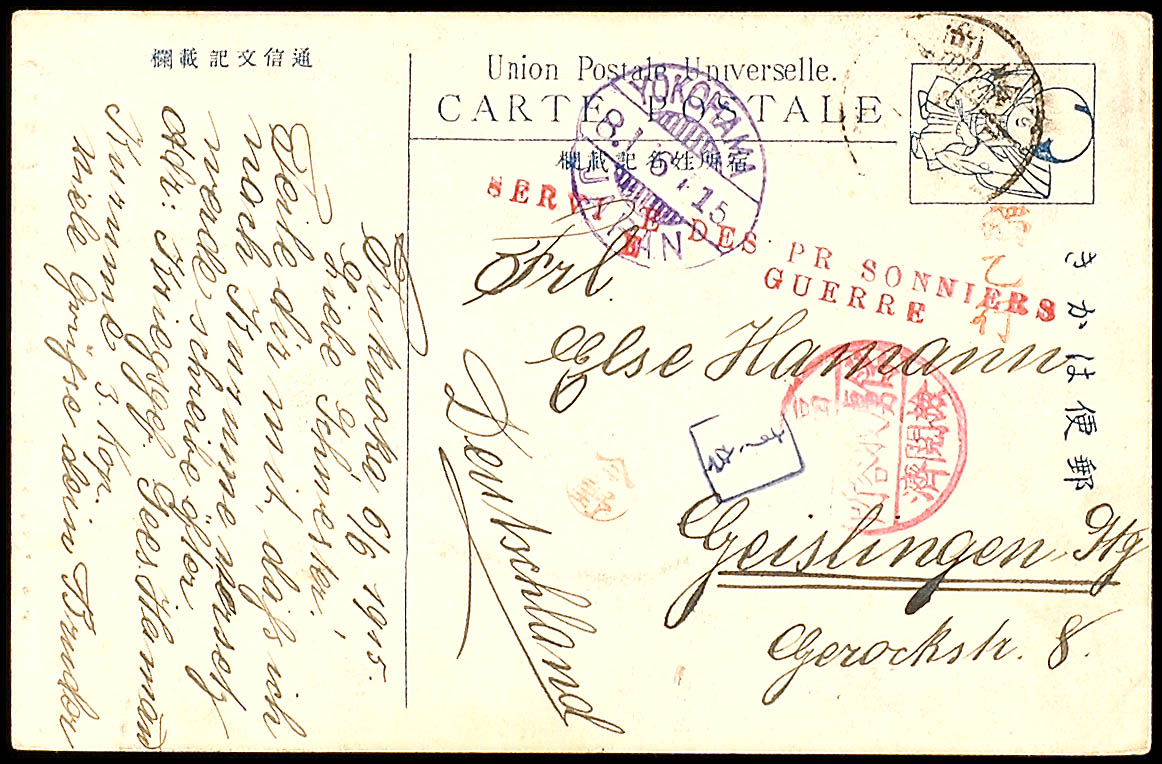 欄載記文信通
Union Postale Universelle.
CARTE POSTALE
欄載記名姓所宿
きかは便郵
YOKOHAMA
8.1.15
JAPAN
SERVI E DES PR SONNIERS
E GUERRE
檢閲濟
Frl.
Else Hamann
Geislingen Stg
Gerockstr. 8.
Deutschland
6/6 1915.
Liebe Schwester,
Teile dir mit, daß ich
noch Kurume versetz
werde schreibe öfter.
Adr: Kriegsgef. Gees. Hamann
Kurume 3. Kop.
viele Grüße dein Bruder